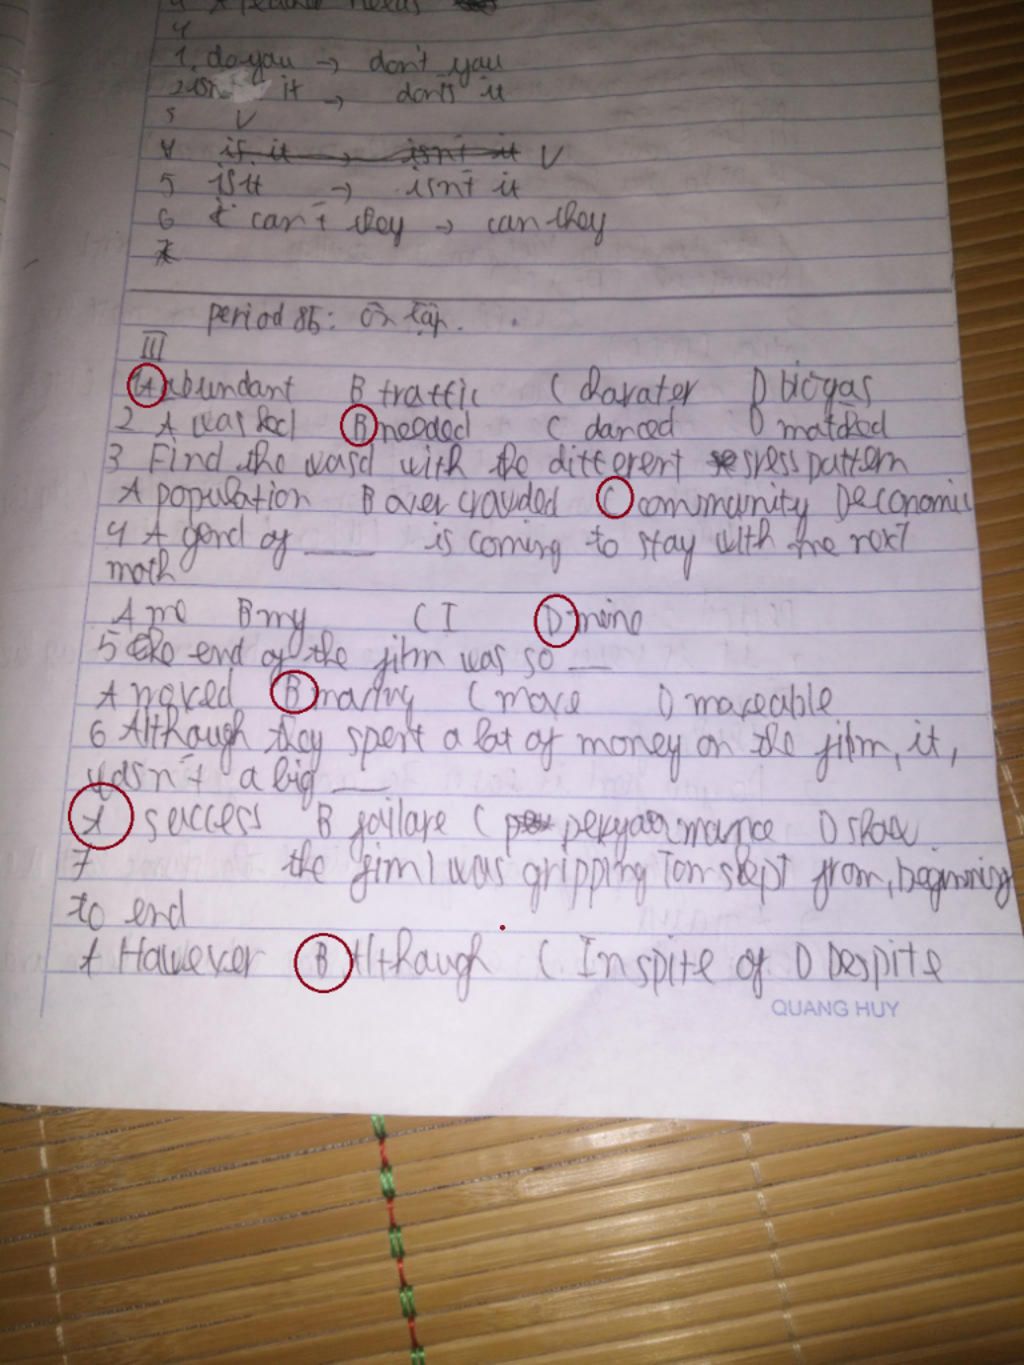 4
1. do you → don't you
2 isn't it → don't it
3 V
4 is it → isn't it V
5 is it → isn't it
6 can't they → can they
7
period 85: ôn tập.
III
1 A abundant B traffic C charater D biogas
2 A washed B needed C danced D matched
3 Find the word with the different stress pattern
A population B over crowded C community D economic
4 A frend of ___ is coming to stay with me next
moth
A me B my C I D mine
5 the end of the film was so __
A moved B moving C move D moveable
6 Although they spent a lot of money on the film, it,
wasn't a big __
A success B failare C performance D show
7 the film was gripping Tom slept from, beginning
to end
A However B Although C Inspite of D Despite
QUANG HUY